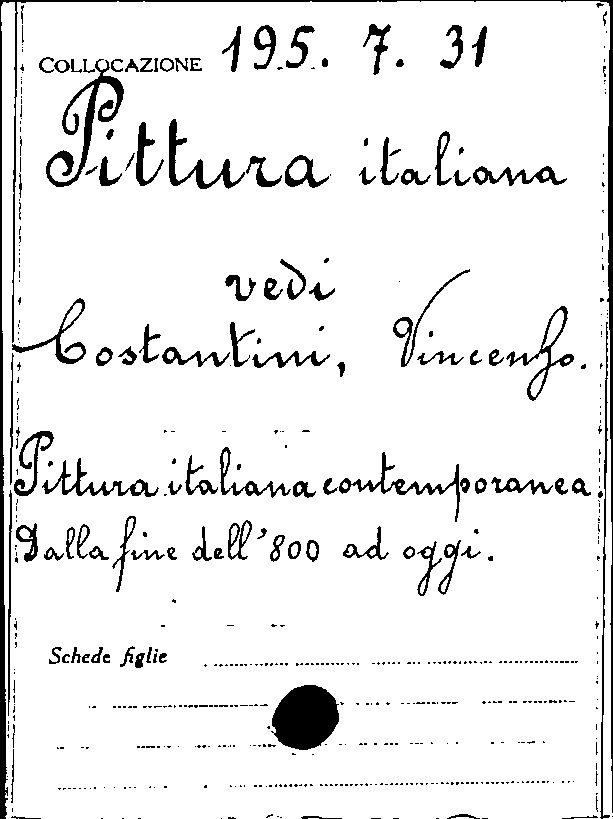 COLLOCAZIONE 195. 7. 31
Pittura italiana
vedi
Costantini, Vincenzo.
Pittura italiana contemporanea.
Dalla fine dell'800 ad oggi.
Schede figlie